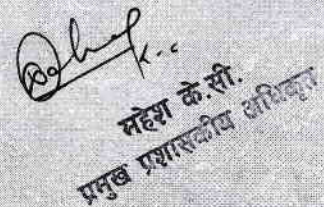 K.C
महेश के.सी.
प्रमुख प्रशासकीय अधिकृत